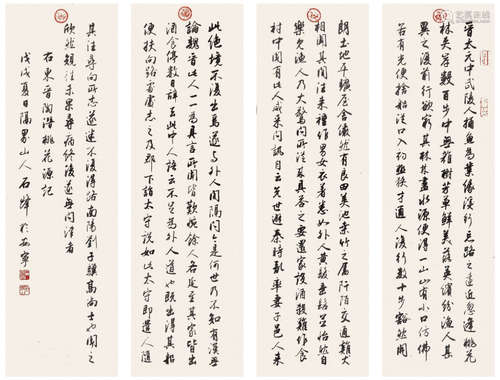 晉太元中武陵人捕魚為業緣溪行忘路之遠近忽逢桃花
林夾岸數百步中無雜樹芳草鮮美落英繽紛漁人甚
異之復前行欲窮其林林盡水源便得一山山有小口仿佛
若有光便捨船從口入初極狹才通人復行數十步豁然開
朗土地平曠屋舍儼然有良田美池桑竹之屬阡陌交通雞犬
相聞其間往來種作男女衣著悉如外人黃髮垂髫並怡然自
樂見漁人乃大驚問所從來具答之要還家設酒殺雞作食
村中聞有此人咸來問訊自云先世避秦時亂率妻子邑人來
此絕境不復出焉遂與外人間隔問今是何世乃不知有漢無
論魏晉此人一一為具言所聞皆歎惋餘人各延至其家皆出
酒食停數日辭去此中人語云不足為外人道也既出得其船
便扶向路處處志之及郡下詣太守說如此太守即遣人隨
其往尋向所志遂迷不復得路南陽劉子驥高尚士也聞之
欣然規往未果尋病終後遂無問津者
右東晉陶潛桃花源記
戊戌夏日隔界山人石峰於西寧